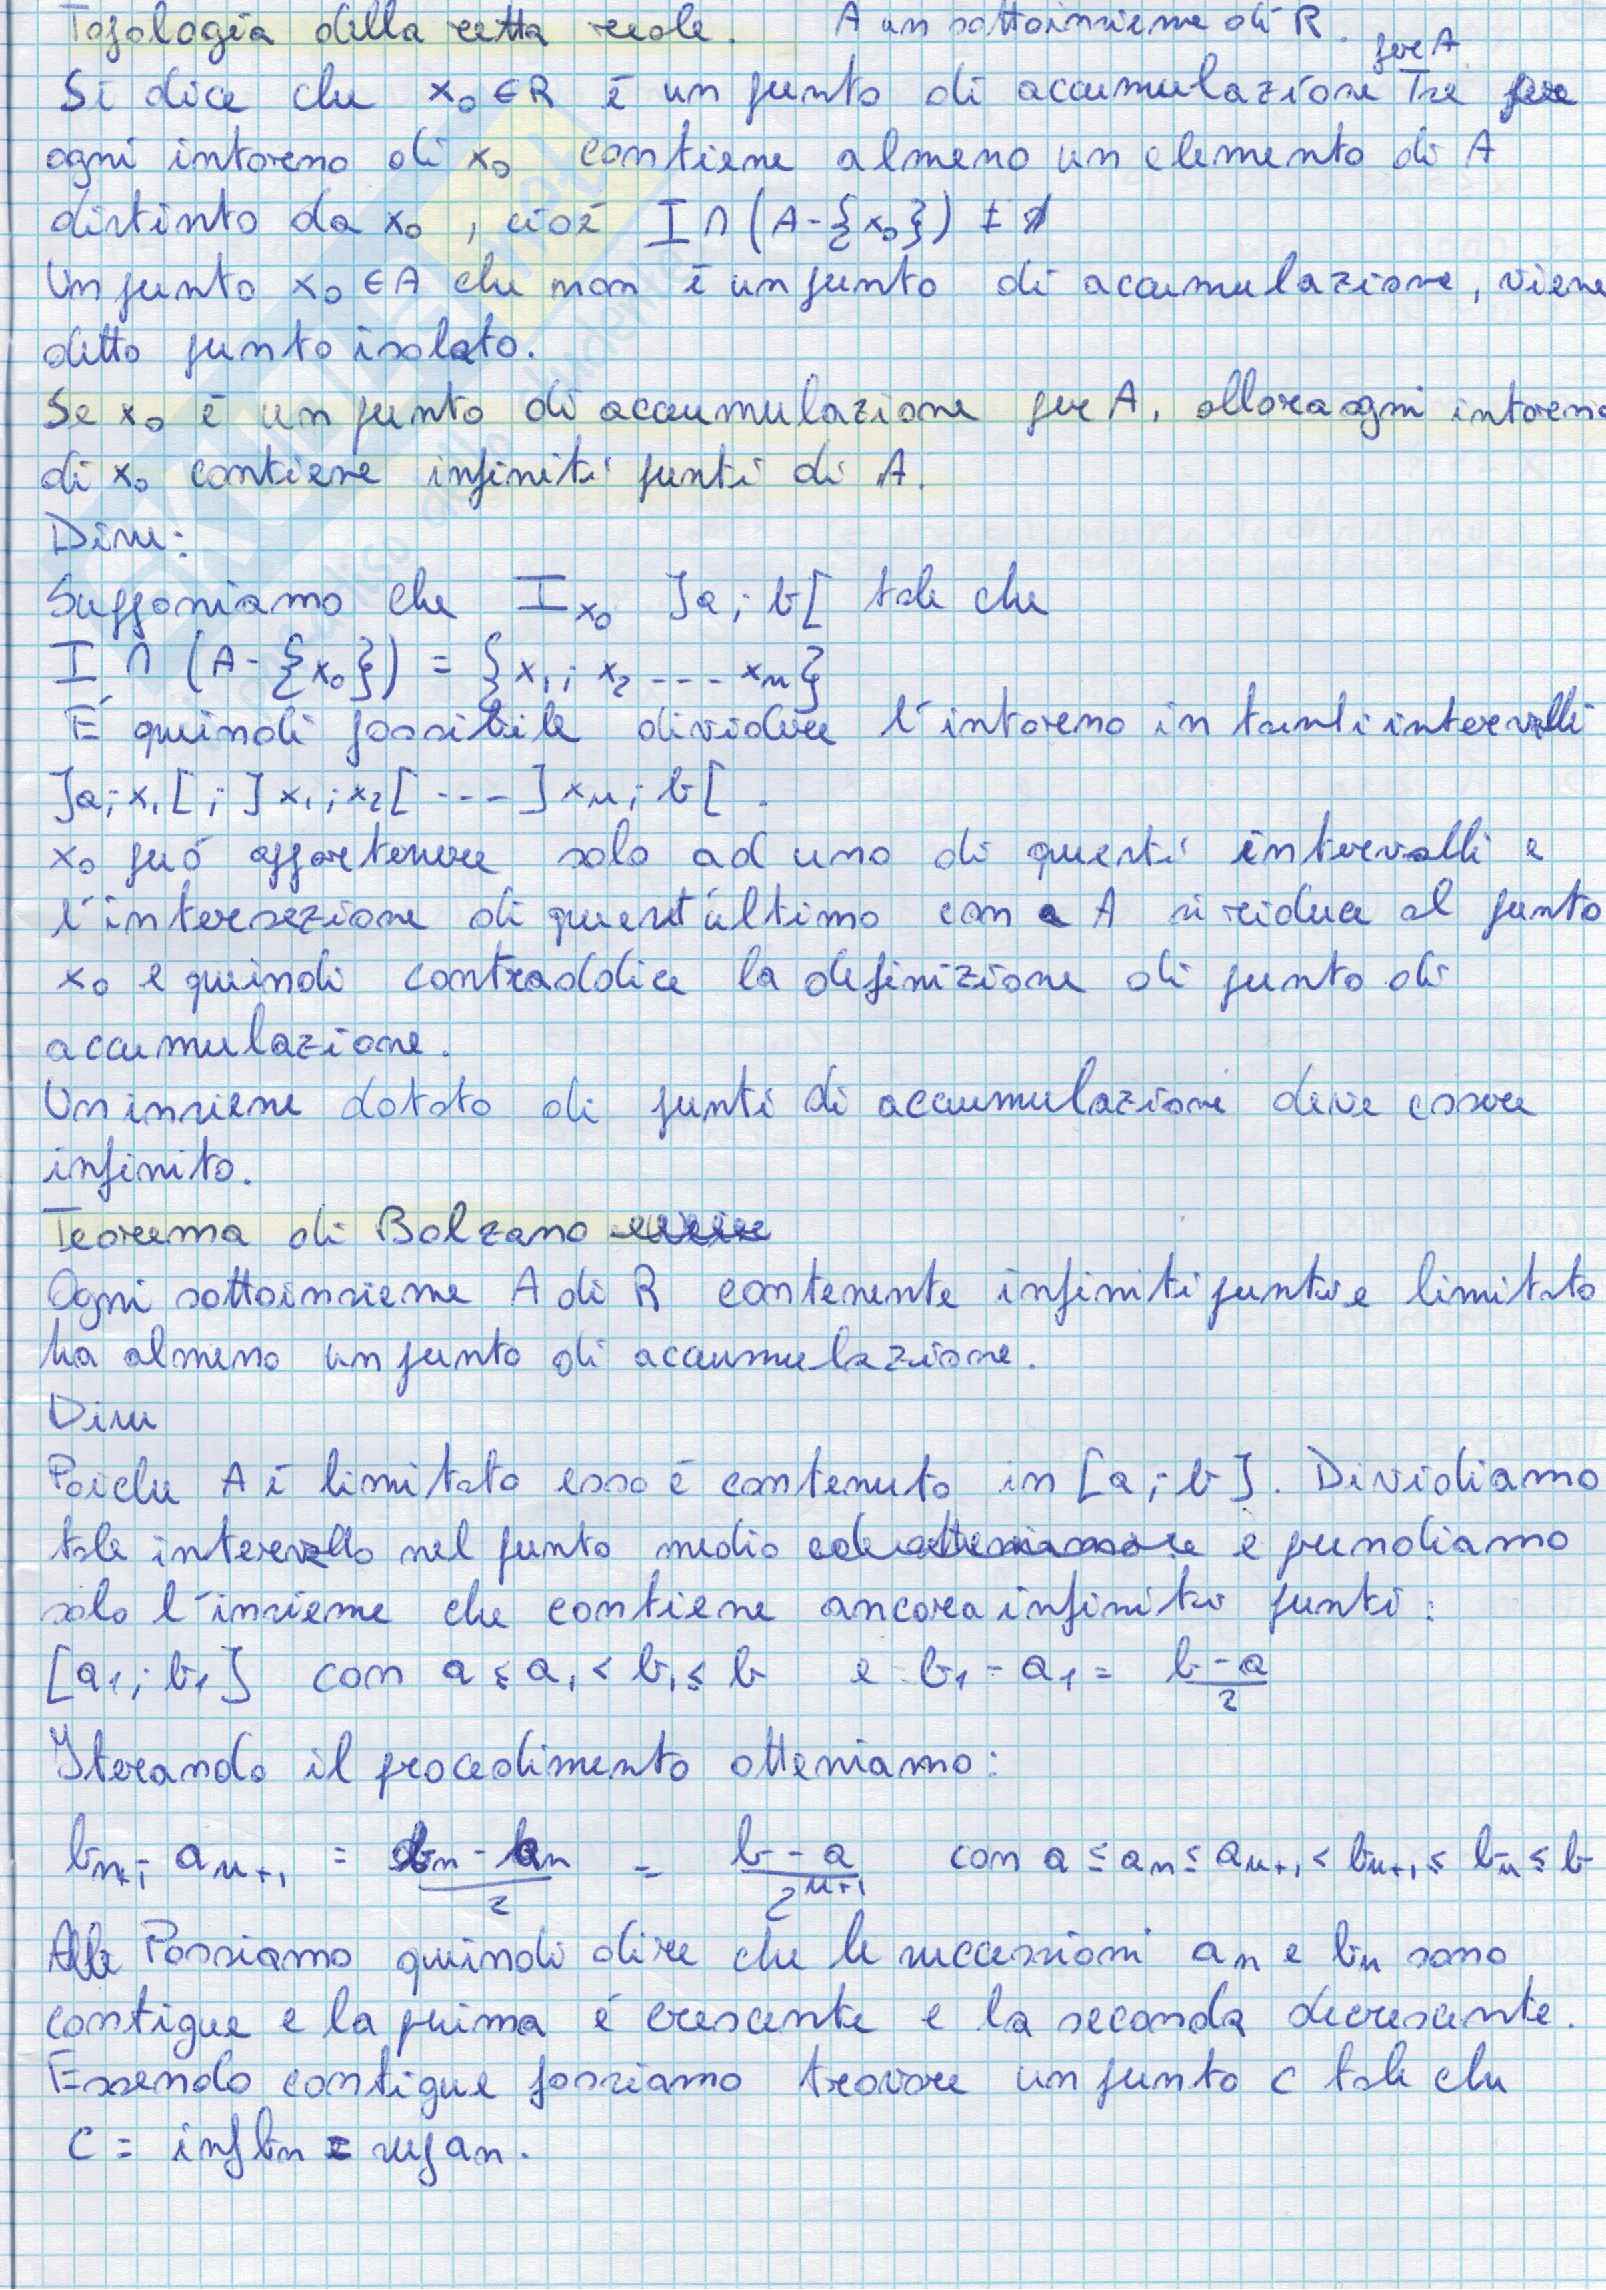 Topologia della retta reale. A un sottoinsieme di R.
per A
Si dice che x₀ ∈ R è un punto di accumulazione se
ogni intorno di x₀ contiene almeno un elemento di A
distinto da x₀, cioè I ∩ (A-{x₀}) ≠ ∅
Un punto x₀ ∈ A che non è un punto di accumulazione, viene
detto punto isolato.
Se x₀ è un punto di accumulazione per A, allora ogni intorno
di x₀ contiene infiniti punti di A.
Dim:
Supponiamo che I_x₀ ]a; b[ tale che
I ∩ (A-{x₀}) = {x₁; x₂ .... xₙ}
É quindi possibile dividere l'intorno in tanti intervalli
]a; x₁[ ; ]x₁; x₂[ ---- ]xₙ; b[ .
x₀ può appartenere solo ad uno di questi intervalli e
l'intersezione di quest'ultimo con A si riduce al punto
x₀ e quindi contraddice la definizione di punto di
accumulazione.
Un insieme dotato di punti di accumulazione deve essere
infinito.
Teorema di Bolzano
Ogni sottoinsieme A di R contenente infiniti punti e limitato
ha almeno un punto di accumulazione.
Dim
Poiche A è limitato esso è contenuto in [a; b]. Dividiamo
tale intervallo nel punto medio e prendiamo
solo l'insieme che contiene ancora infiniti punti:
[a₁; b₁] con a ≤ a₁ < b₁ ≤ b e b₁ - a₁ = (b-a)/2
Iterando il procedimento otteniamo:
bₙ₊₁ - aₙ₊₁ = (bₙ - aₙ)/2 = (b-a)/2ⁿ⁺¹ con a ≤ aₙ ≤ aₙ₊₁ < bₙ₊₁ ≤ bₙ ≤ b
Possiamo quindi dire che le successioni aₙ e bₙ sono
contigue e la prima é crescente e la seconda decrescente.
Essendo contigue possiamo trovare un punto c tale che
c = inf bₙ = sup aₙ.